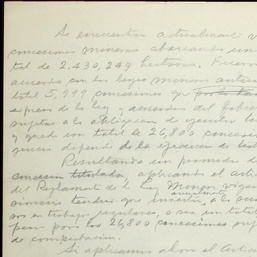 Se encuentran actualmente v
concesiones mineras abarcando un
tal de 2.430,249 hectareas. Fueron
acuerdo con las leyes mineras anter
total 5,999 concesiones que
expresa de la ley y acuerdos del Gobier
sujetas a la obligacion de ejecutar
y queda un total de 26,800 concesio
depende de la ejecucion de
Resultando un promedio de
concesion titulada, aplicando el arti
del Reglamento de la Ley Minera vigen
anualmente
minero tendra que invertir, a los
en trabajos regulares, o sea un total
pesos para las 26,800 concesiones
de computacion.
Si aplicamos ahora el Artic